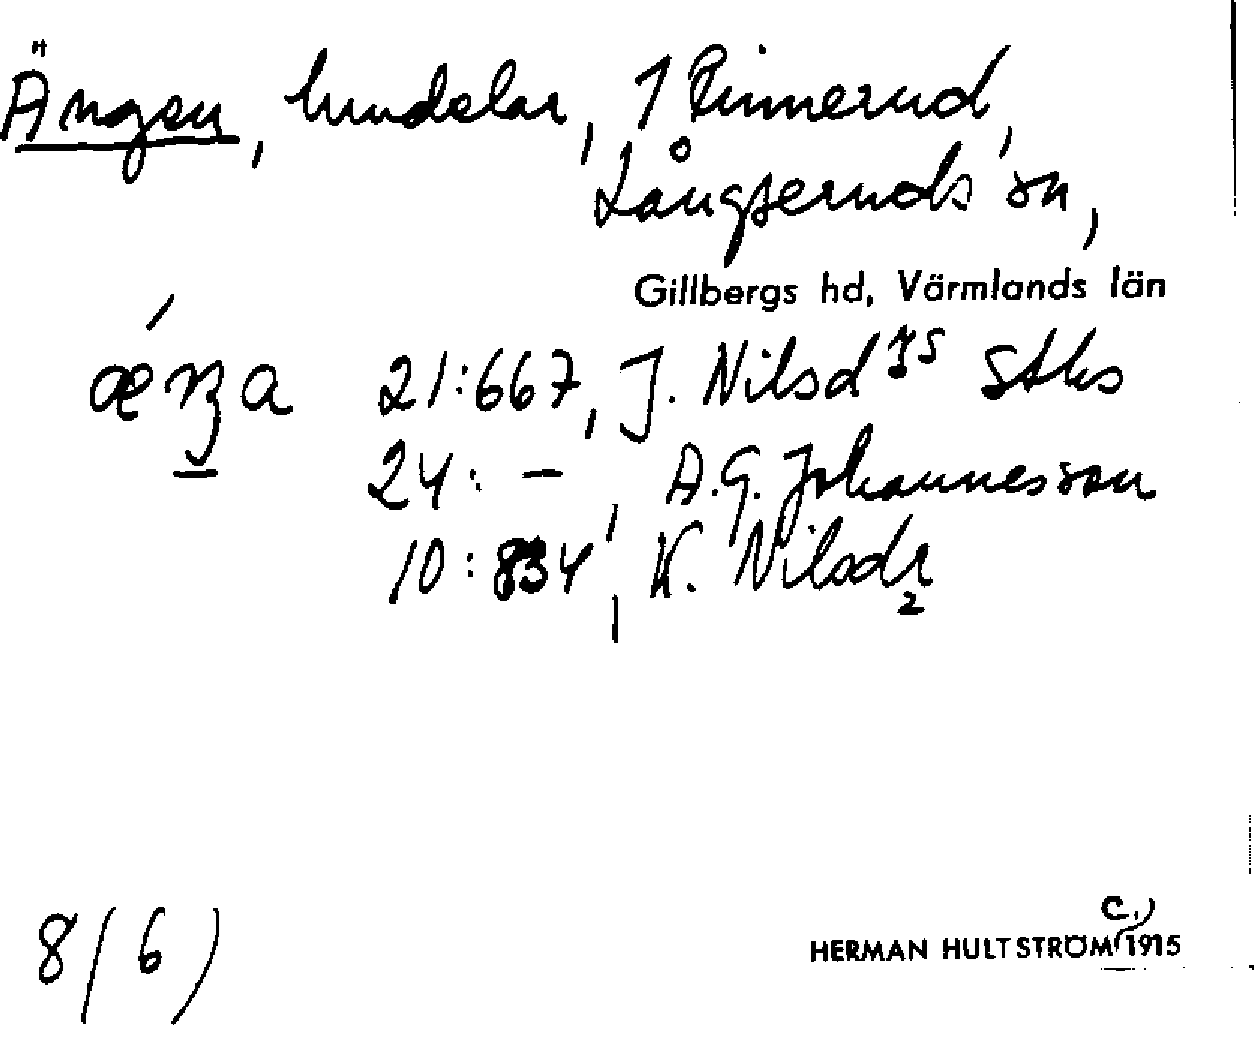 Ängen, lundelar, 1 Rinnerud,
Långseruds sn,
Gillbergs hd, Värmlands län
21:667, J. Nilsd
24: –, A.G. Johannesson
10:834, K. Nilsdr
2
8(6)
C.)
HERMAN HULTSTRÖM 1915